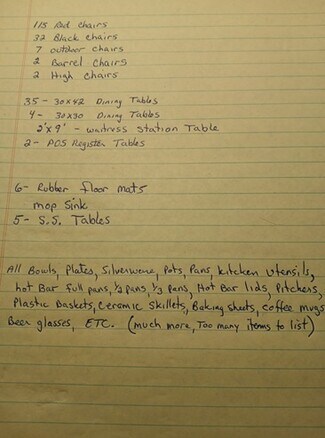 115 Red chairs
32 Black chairs
7 outdoor chairs
2 Barrel Chairs
2 High Chairs
35 - 30x42 Dining Tables
4 - 30x30 Dining Tables
2'x9' - waitress Station Table
2 - POS Register Tables
6 - Rubber floor mats
mop sink
5 - S.S. Tables
All Bowls, Plates, Silverware, Pots, Pans, kitchen utensils,
hot Bar full pans, 1/2 pans, 1/3 pans, Hot Bar lids, Pitchers,
Plastic Baskets, Ceramic Skillets, Baking sheets, coffee mugs
Beer glasses, ETC. (much more, Too many items to list)